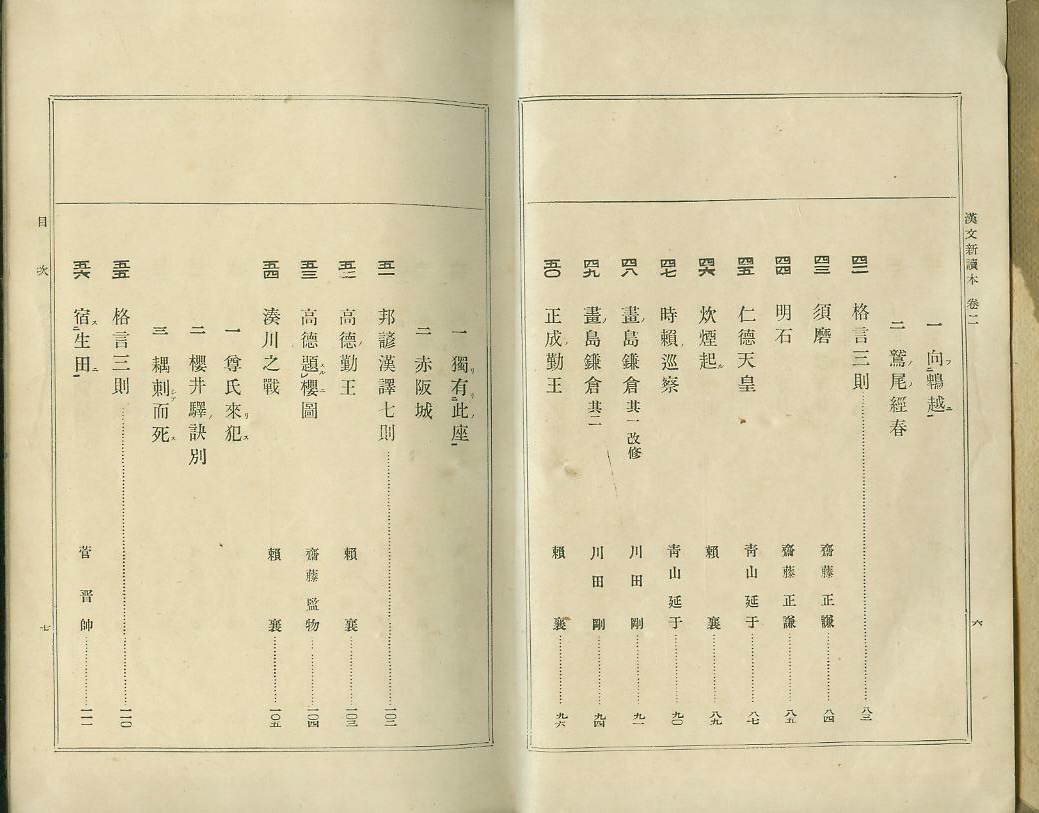 漢文新讀本 卷二 六
一 向鵯越
二 鷲尾經春
四二 格言三則 八三
四三 須磨 齋藤正謙 八四
四四 明石 齋藤正謙 八五
四五 仁德天皇 青山延于 八七
四六 炊煙起 賴襄 八九
四七 時賴巡察 青山延于 九〇
四八 畫島鎌倉 其一 改修 川田剛 九一
四九 畫島鎌倉 其二 川田剛 九四
五〇 正成勤王 賴襄 九六
一 獨有此座
二 赤阪城
五一 邦諺漢譯七則 一〇二
五二 高德勤王 賴襄 一〇三
五三 高德題櫻圖 齋藤監物 一〇四
五四 湊川之戰 賴襄 一〇五
一 尊氏來犯
二 櫻井驛訣別
三 耦刺而死
五五 格言三則 一一〇
五六 宿生田 菅晋帥 一一一
目次 七